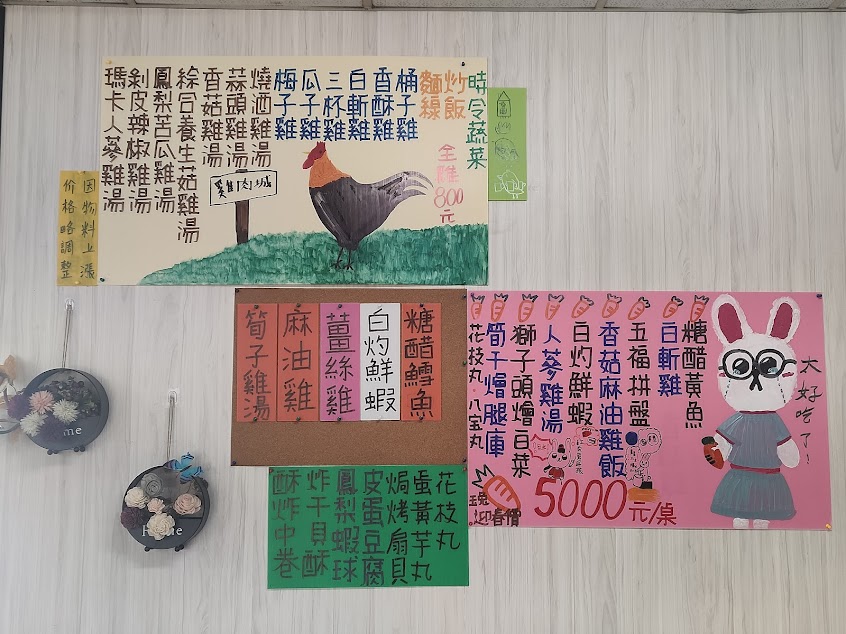 時令蔬菜
炒飯
麵線
全雞800元
桶子雞
香酥雞
白斬雞
三杯雞
瓜子雞
梅子雞
燒酒雞湯
蒜頭雞湯
香菇雞湯
綜合養生菇雞湯
鳳梨苦瓜雞湯
剝皮辣椒雞湯
瑪卡人蔘雞湯
雞肉城
因物料上漲
价格略調整
糖醋鱈魚
白灼鮮蝦
薑絲雞
麻油雞
筍子雞湯
糖醋黃魚
白斬雞
五福拼盤
香菇麻油雞飯
白灼鮮蝦
人蔘雞湯
獅子頭燴白菜
筍干燴腿庫
花枝丸、八宝丸
太好吃了!
玉兔
迎春價
5000元/桌
花枝丸
蛋黃芋丸
焗烤扇貝
皮蛋豆腐
鳳梨蝦球
炸干貝酥
酥炸中卷
Home